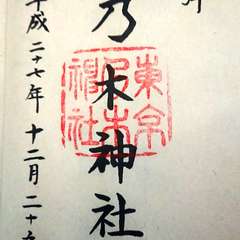 乃木神社
東京
乃木
神社
平成二十七年十二月二十九